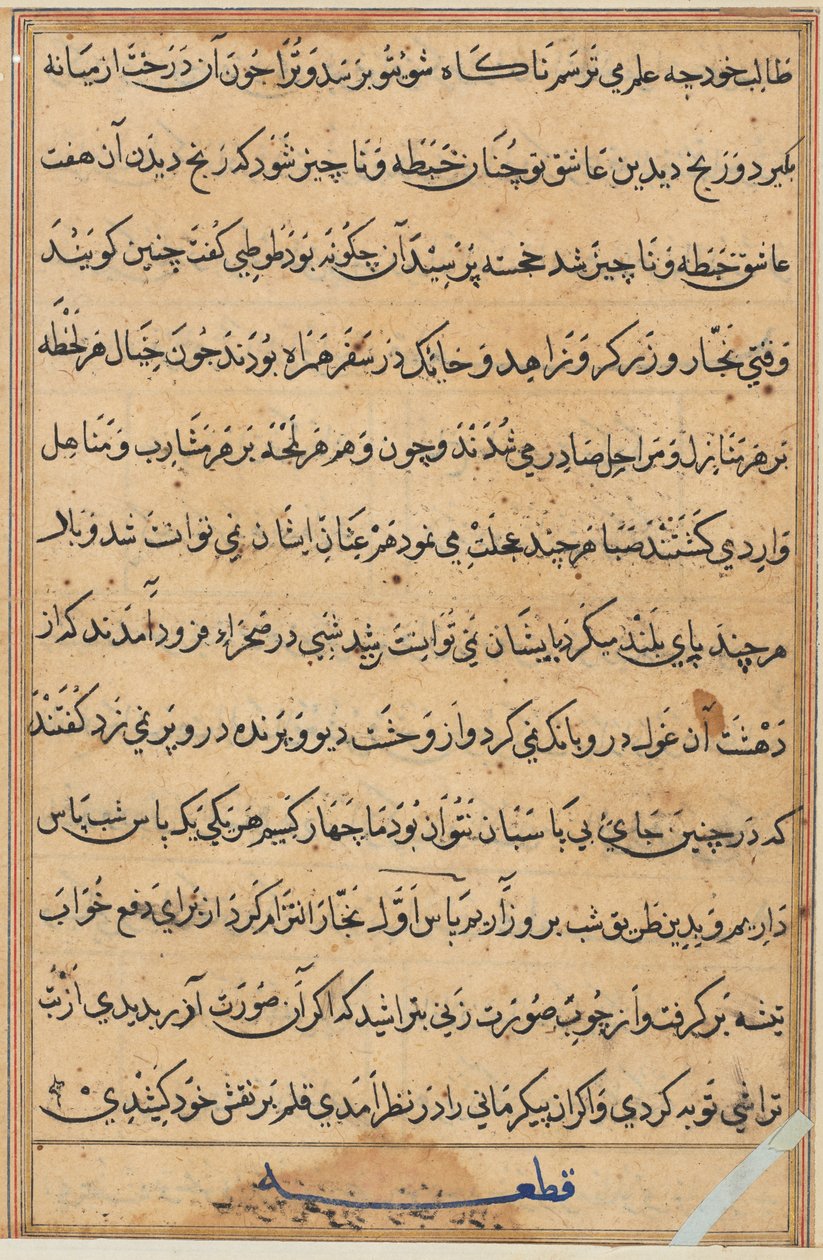 طالب خود چه علم می ترسم ناكاه شوی تو برسد و ترا چون آن درخت از میانه
بكیرد و رنج دیدین عاشق تو چنان خبطه و ناچیز شود كه رنج دیدن آن هفت
عاشق خبطه و ناچیز شد خجسته پرسید آن چكونه بود طوطی كفت چنین كویند
وقتی نجار و زركر و زاهد و حایك در سفر همراه بودند چون خیال هر لحظه
بر هر منازل و مراحل صادر می شدند و چون وهم هر لمحه بر هر مشارب و مناهل
وارد می كشتند صبا هر چند عجلت می نمود هم عنان ایشان نمی توانست شد و باد
هر چند پای بلند میكرد بایشان نمی توانست رسید شبی در صحراء فرود آمدند كه از
دهشت آن غول در و بانك نمی كرد و از وحشت دیو و پرنده در و پر نمی زد كفتند
كه در چنین جایی بی پاسبان نتوان بود ما چهار كسیم هر یكی یك پاس شب پاس
داریم و بدین طریق شب بروز آریم پاس اول نجار التزام كرد از برای دفع خواب
تیشه بر كرفت و از چوب صورت زنی بتراشید كه اكر آن صورت آذر بدیدی از بت
تراشی توبه كردی و اكر آن پیكر مانی را در نظر آمدی قلم بر نقش خود كشیدی
قطعه